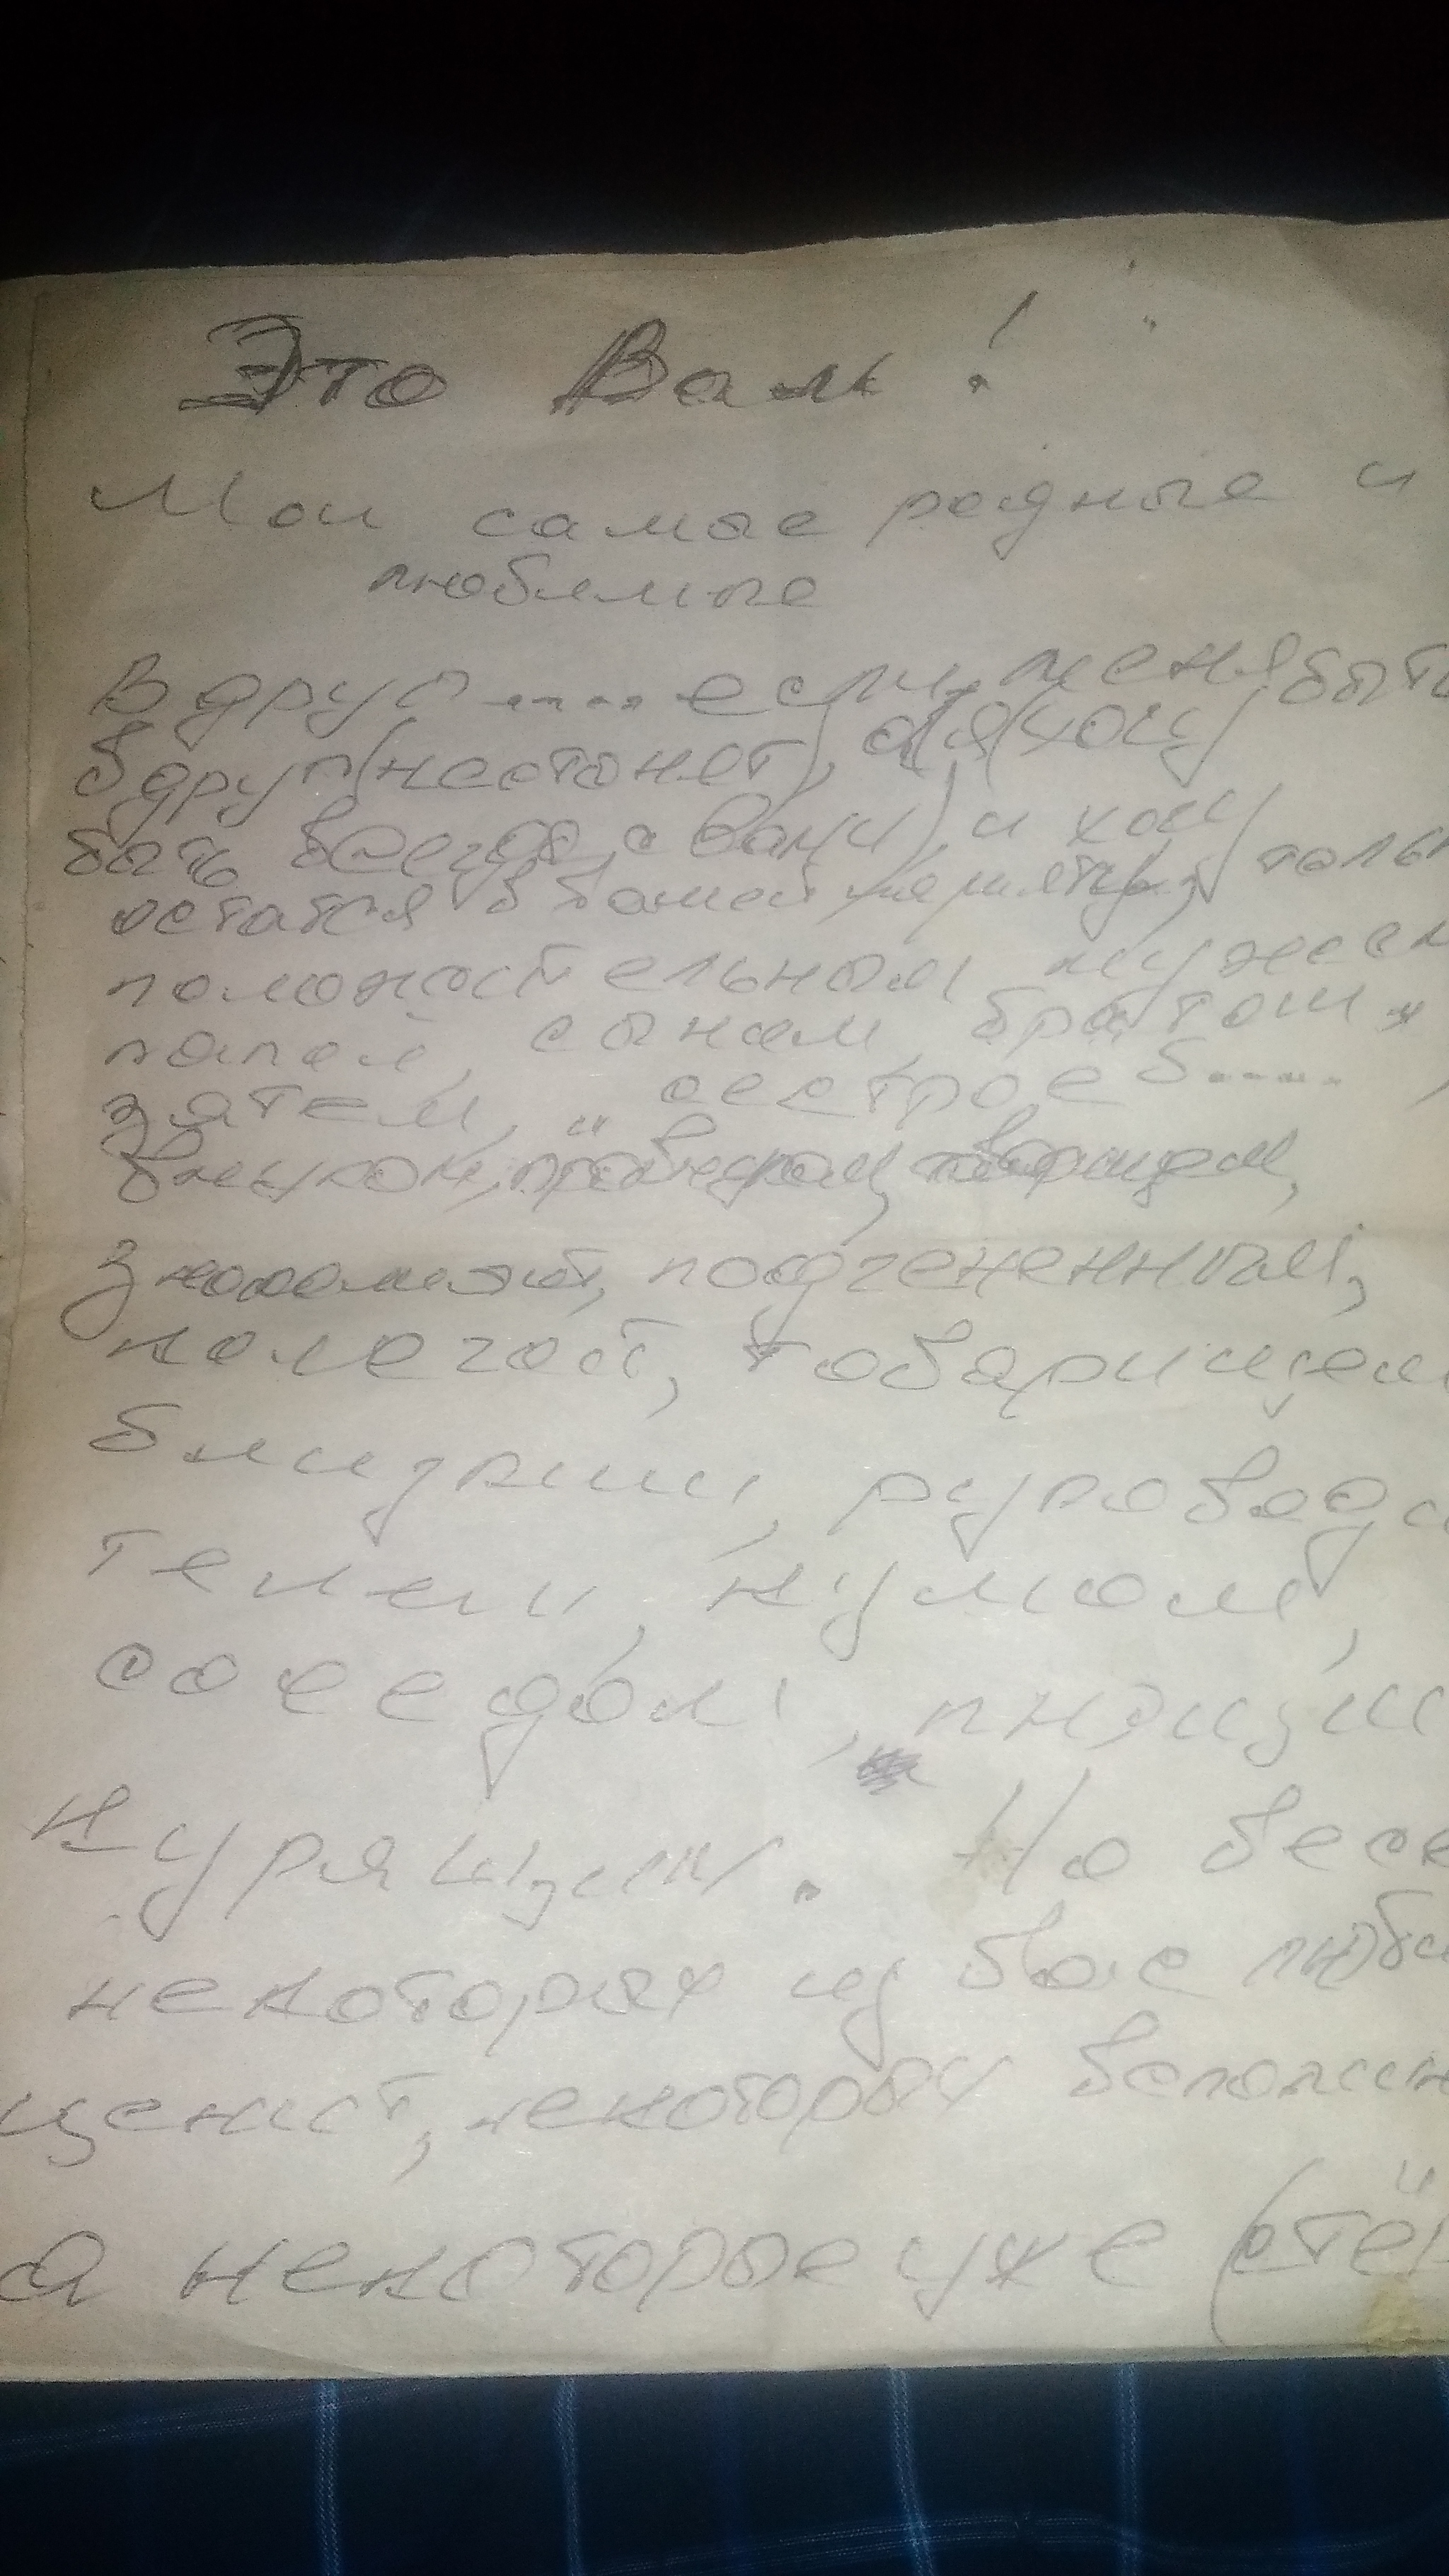 Это Вам!
Мои самые родные и
любимые
Вдруг..... если меня быть
вдруг (нестанет), а я (хочу
быть всегда с Вами) и хочу
остатся в вашей памяти, толь
положительным мужем
папой, сынам, братом,
зятем, " сестрое б.....,
внуком, товарищем,
знакомой, подчененным,
колегой, товарищем
близким, руководи
телем, кумом,
соседом,
курящим. Но всех
некоторых из вас люби
ценит, некоторых вспомин
а некоторые уже (